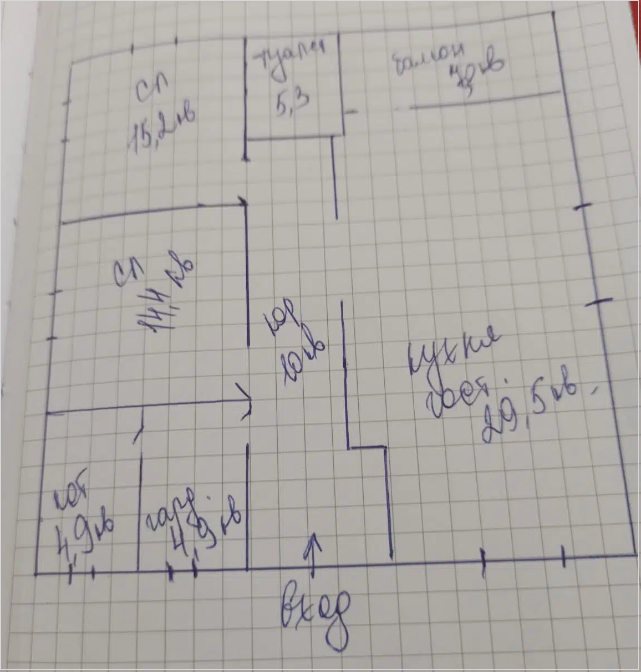 СП
15,2 кв
туалет
5,3
балкон
кв
СП
14,4 кв
кор
10 кв
кухня
гост.
29,5 кв.
кот
4,9 кв
гард.
4,9 кв
вход